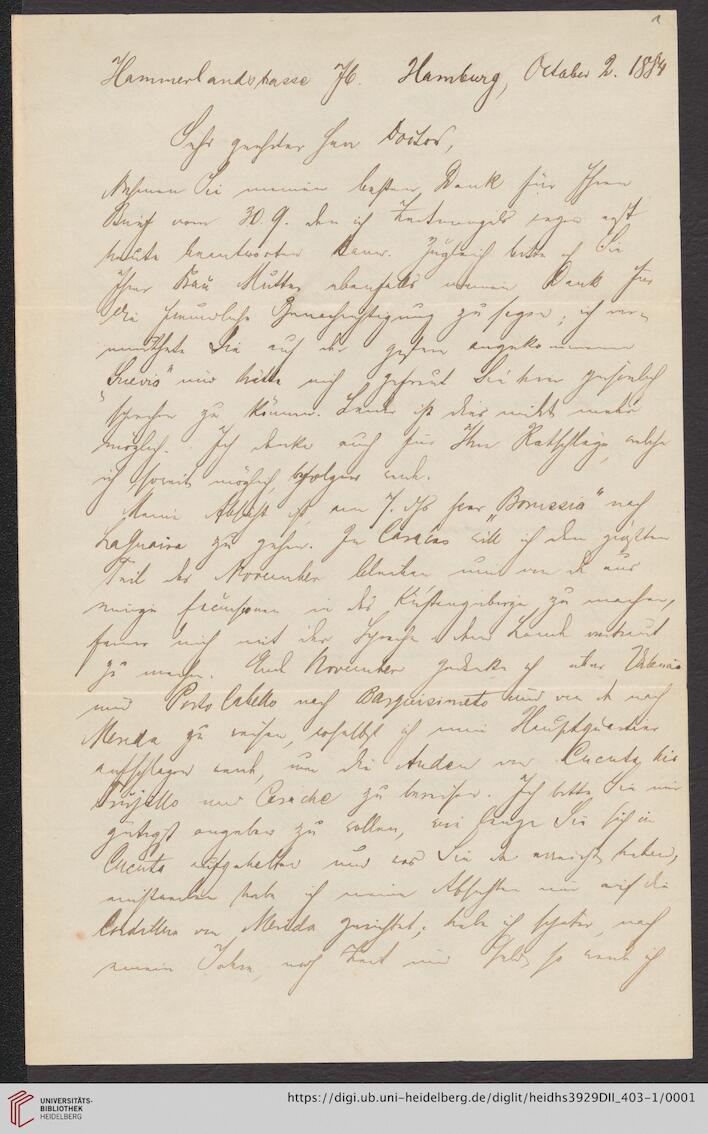 1
Hammerlandstrasse 76. Hamburg, October 2. 1884
Sehr geehrter Herr Doctor,
Nehmen Sie meinen besten Dank für Ihren
Brief vom 30. 9. den ich Zeitmangels wegen erst
heute beantworten kann. Zugleich bitte ich Sie
Ihrer Frau Mutter ebenfalls meinen Dank für
die freundliche Benachrichtigung zu sagen; ich ver-
muthete Sie auf der gestern angekommenen
"Suevia" und hätte mich gefreut Sie hier persönlich
sprechen zu können. Leider ist dies nicht mehr
möglich. Ich danke auch für Ihre Ratschläge, welche
ich, soweit möglich, befolgen werde.
Meine Absicht ist, am 7. ds per "Borussia" nach
LaGuaira zu gehen. In Carácas will ich den größten
Teil des November bleiben und von da aus
einige Excursionen in das Küstengebirge zu machen,
ferner mich mit der Sprache & dem Lande vertraut
zu machen. Ende November gedenke ich über Valencia
und Porto Cabello nach Barquisimeto und von da nach
Merida zu reisen, woselbst ich mein Hauptquartier
aufschlagen werde, um die Anden von Cucuta bis
Trujillo und Carache zu bereisen. Ich bitte Sie mir
gütigst angeben zu wollen, wie lange Sie sich in
Cucuta aufgehalten und was Sie da erreicht haben,
einstweilen habe ich meine Absichten nur auf die
Cordillera von Merida gerichtet; habe ich später, nach
einem Jahre, noch Zeit und Geld, so werde ich
UNIVERSITÄTS-
BIBLIOTHEK
HEIDELBERG
https://digi.ub.uni-heidelberg.de/diglit/heidhs3929DII_403-1/0001